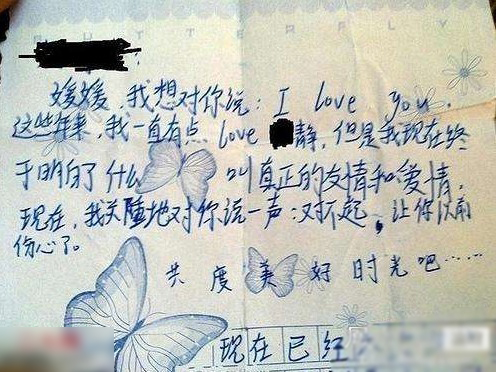 BUTTERFLY
媛媛,我想对你说:I love you,
这些年来,我一直有点 love 静,但是我现在终
于明白了什么叫真正的友情和爱情,
现在,我关隆地对你说一声:对不起,让你以前
伤心了。
共度美好时光吧……
现在已经